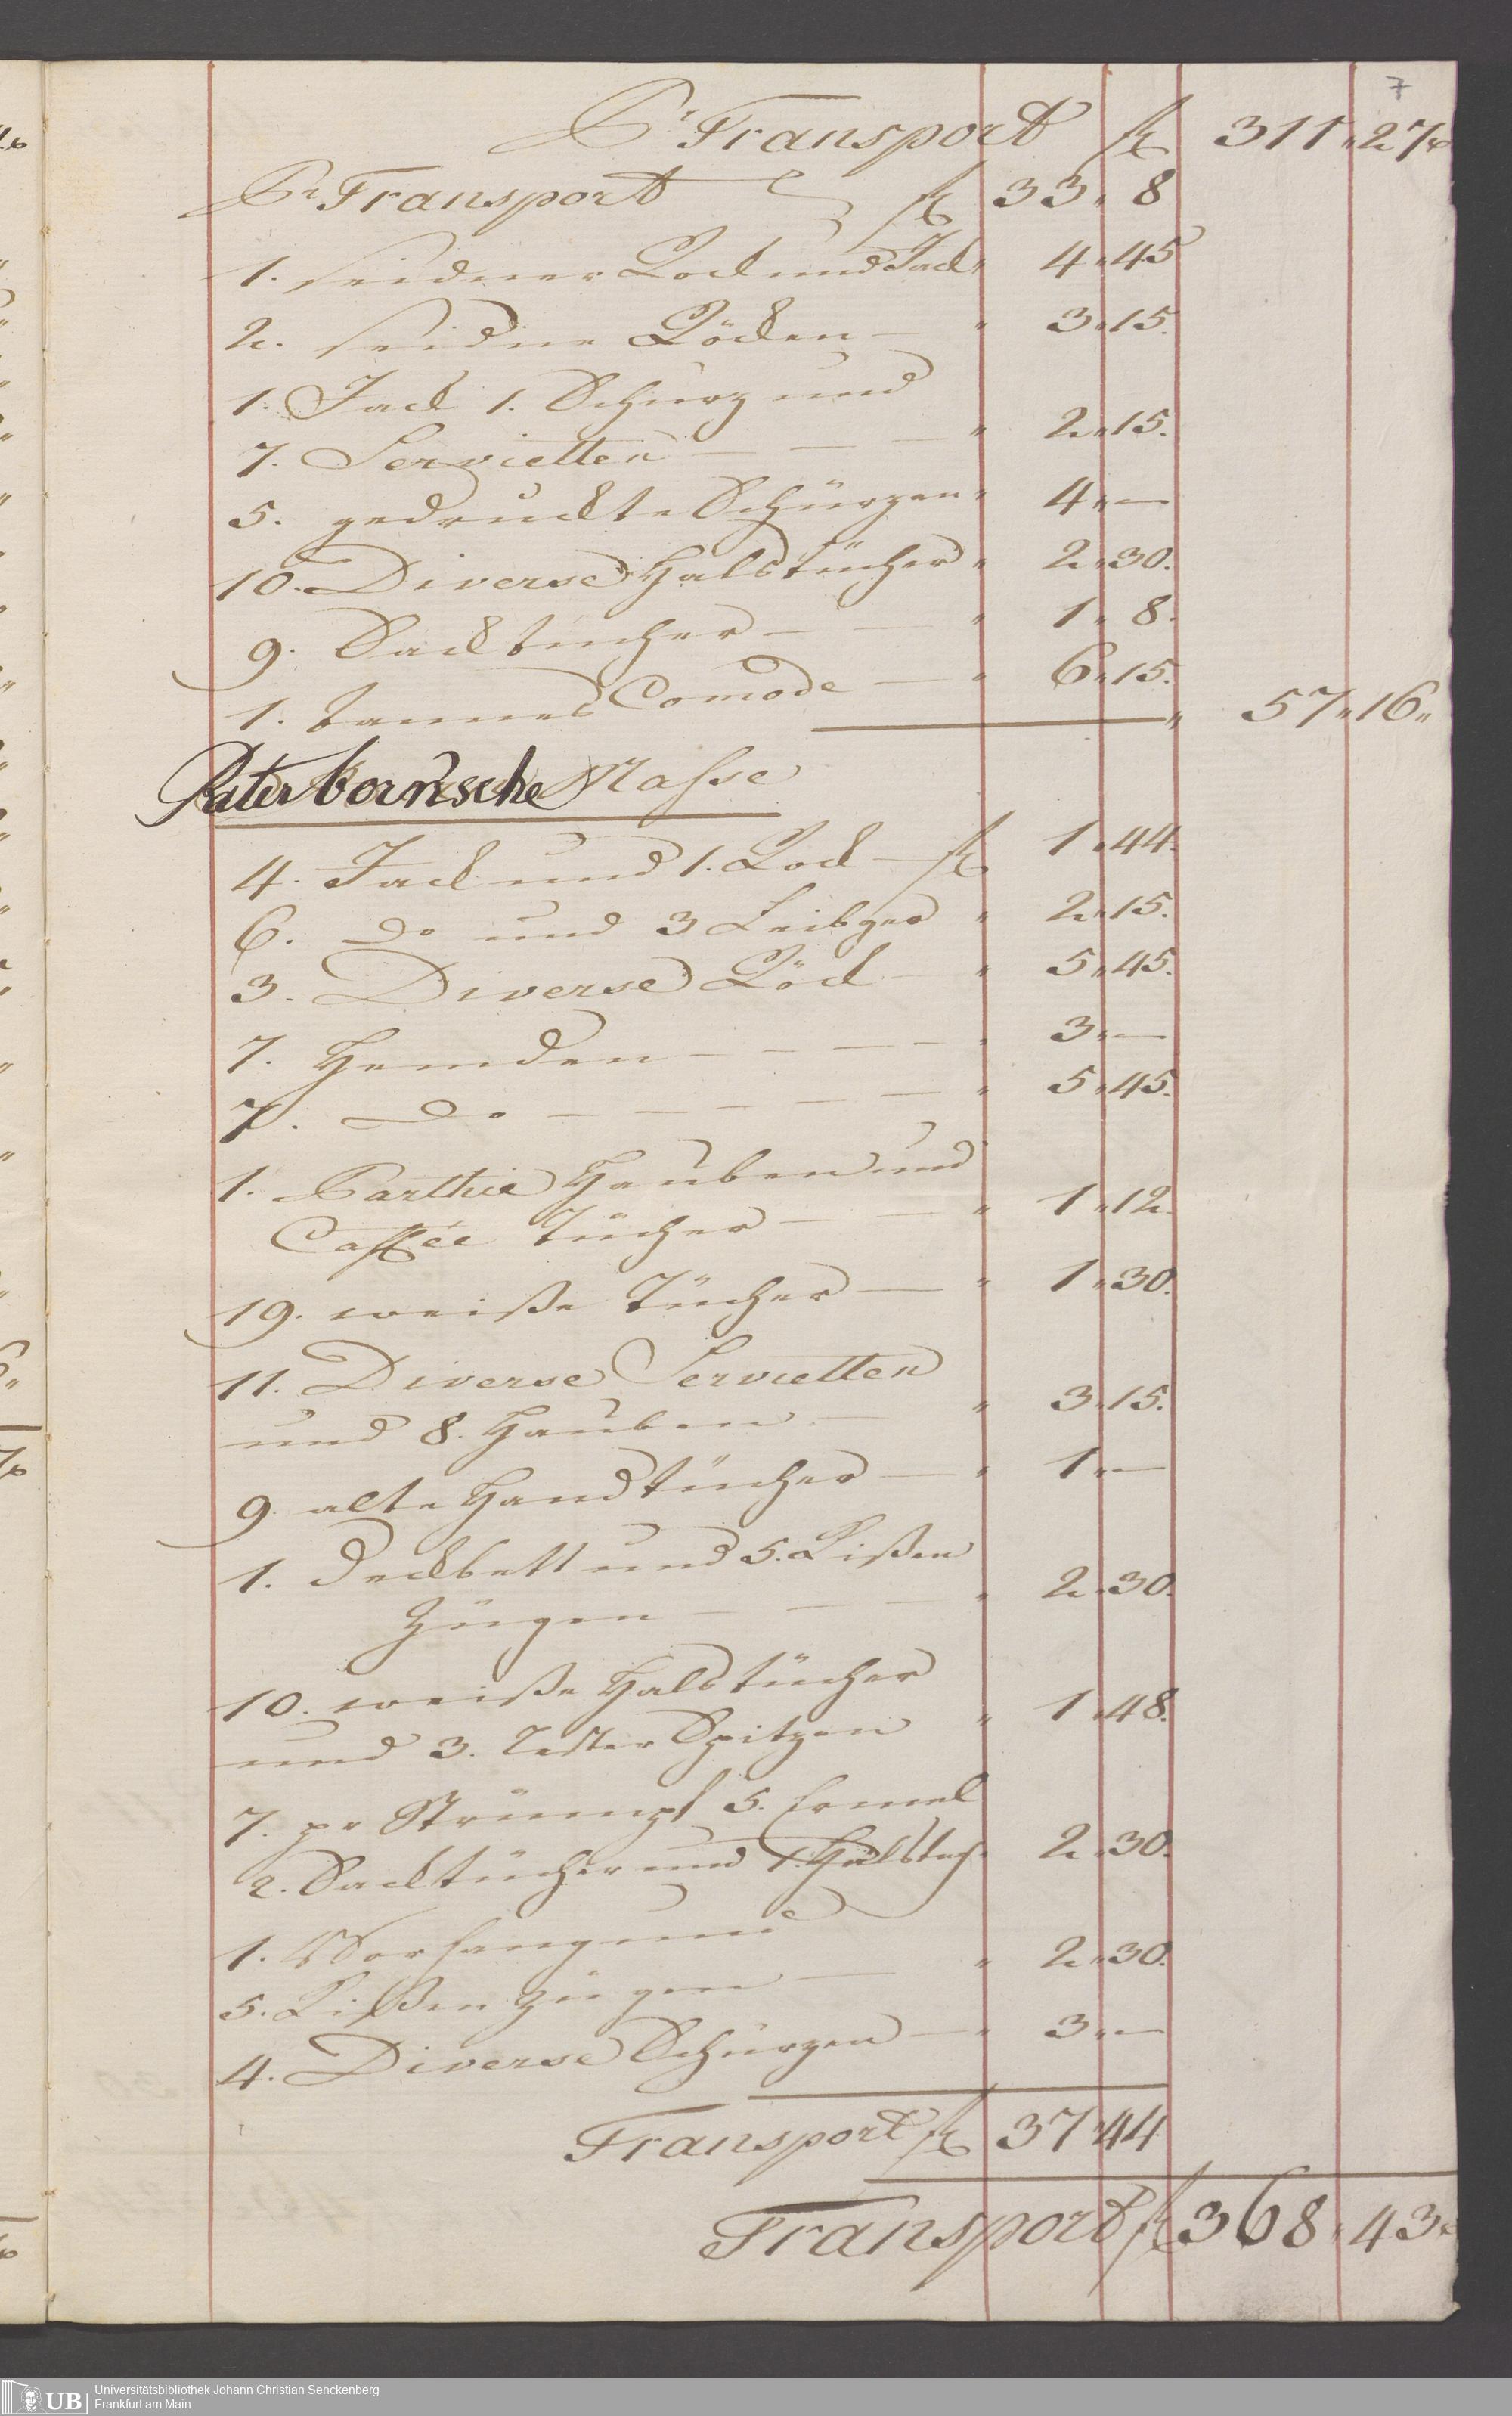 7
Pr Transport f 311 " 27 "
Pr Transport f 33 " 8
1. seidner Rock und Jack " 4 " 45
2. seidne Röcken — " 3 " 15.
1. Jack 1. Schurz und
7. Servietten — — — " 2 " 15.
5. gedruckte Schürzen " 4 " —
10. Diverse Halstücher " 2 " 30.
9. Sacktücher — — " 1 " 8.
1. tannes Comode — " 6 " 15.
" 57 " 16 "
Paterbornsche Masse
4. Jack und 1. Rock — f 1 " 44.
6. Do und 3 Leibger " 2 " 15.
3. Diverse Röck — " 5 " 45.
7. Hemden — — — — " 3 " —
7. Do — — — — — " 5 " 45.
1. Parthie Hauben und
Caffée Tücher — — " 1 " 12.
19. weiße Tücher — " 1 " 30.
11. Diverse Servietten
und 8. Hauben — " 3 " 15.
9 alte Handtücher — " 1 " —
1. Deckbett und 5. Kißen
Zügen — — — " 2 " 30.
10. weiße Halstücher
und 3. Rester Spitzen " 1 " 48.
7. pr Strümpf 5. Ermel
2. Sacktücher und 1. Halstuch 2 " 30.
1. Vorhang und
5. Kißen Zügen — " 2 " 30.
4. Diverse Schürzen — " 3 " —
Transport f 37 " 44
Transport f 368 " 43 "
UB
Universitätsbibliothek Johann Christian Senckenberg
Frankfurt am Main